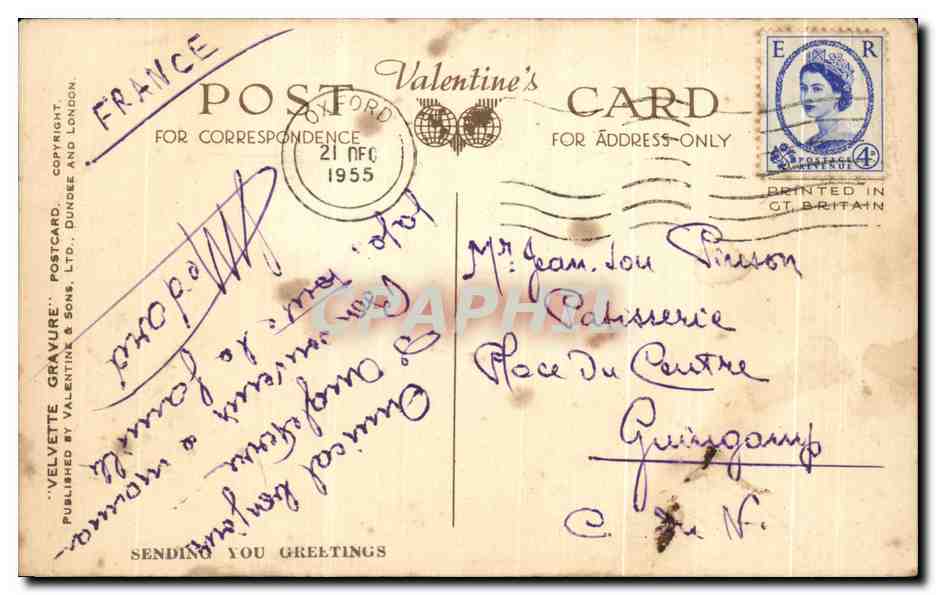 FRANCE
Valentine's
POST CARD
FOR CORRESPONDENCE
FOR ADDRESS ONLY
OXFORD
21 DEC
1955
E R
POSTAGE
REVENUE
4D
PRINTED IN
GT. BRITAIN
"VELVETTE GRAVURE" POSTCARD. COPYRIGHT.
PUBLISHED BY VALENTINE & SONS, LTD., DUNDEE AND LONDON.
Amical bonjour
d'angleterre
bon souvenir a maman
papa,
toute la famille
Medard
Mr. Jean. Lou Pinson
Patisserie
Place Du Centre
Guingamp
C. du N.
SENDING YOU GREETINGS
CPARHIL